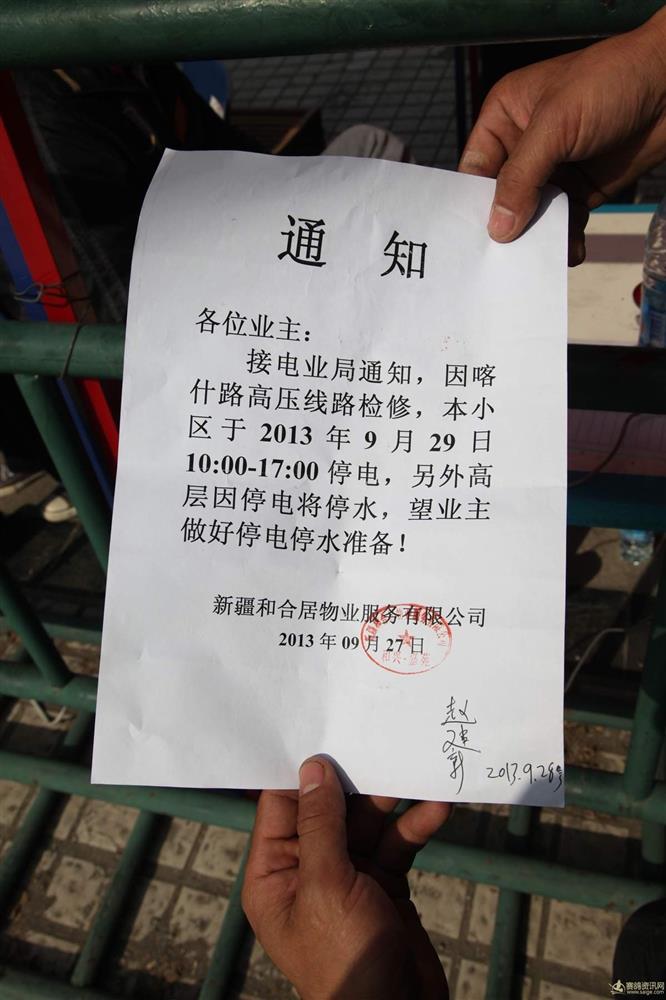 通 知
各位业主：
接电业局通知，因喀
什路高压线路检修，本小
区于 2013 年 9 月 29 日
10:00-17:00 停电，另外高
层因停电将停水，望业主
做好停电停水准备！
新疆和合居物业服务有限公司
2013 年 09 月 27 日
和兴·
苑
赵
2013.9.28号
赛鸽资讯网
www.saige.com